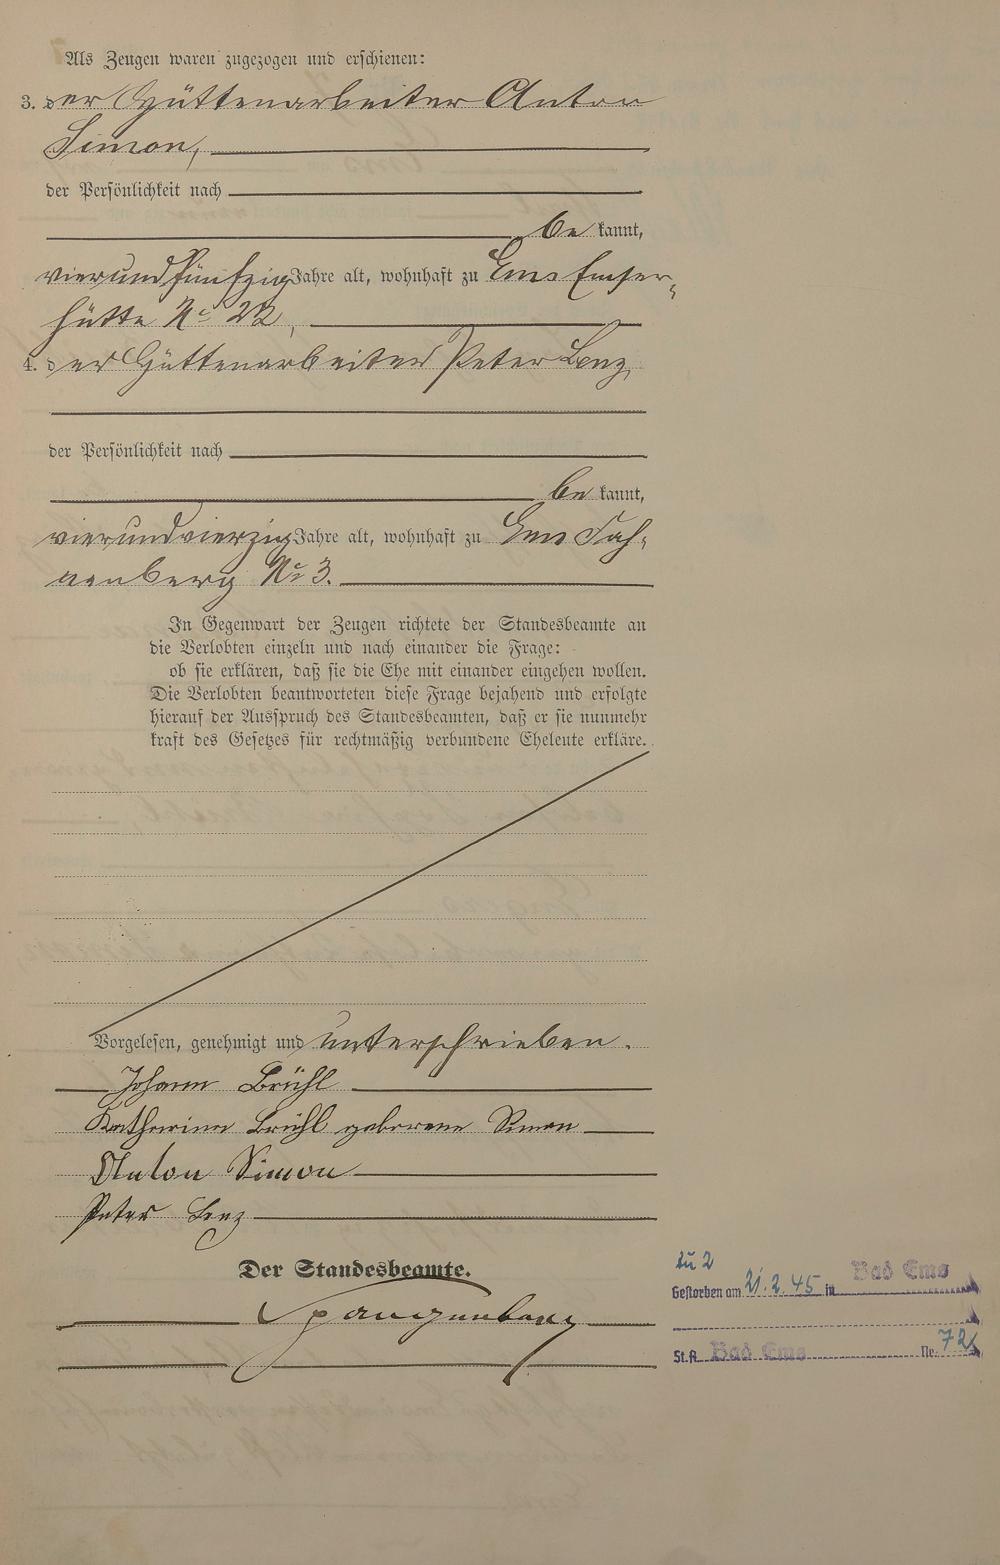 Als Zeugen waren zugezogen und erschienen:
3. der Hüttenarbeiter Anton
Simon,
der Persönlichkeit nach
be kannt,
vierundfünfzig Jahre alt, wohnhaft zu Ems Emser-
hütte No 22,
4. der Hüttenarbeiter Peter Lenz,
der Persönlichkeit nach
be kannt,
vierundvierzig Jahre alt, wohnhaft zu Ems Fah-
nenberg No 3.
In Gegenwart der Zeugen richtete der Standesbeamte an
die Verlobten einzeln und nach einander die Frage:
ob sie erklären, daß sie die Ehe mit einander eingehen wollen.
Die Verlobten beantworteten diese Frage bejahend und erfolgte
hierauf der Ausspruch des Standesbeamten, daß er sie nunmehr
kraft des Gesetzes für rechtmäßig verbundene Eheleute erkläre.
Vorgelesen, genehmigt und unterschrieben.
Johann Brühl
Katharina Brühl geborene Simon
Anton Simon
Peter Lenz
Der Standesbeamte.
Spangenberg
zu 2
Gestorben am 21.2.45 in Bad Ems
St.A. Bad Ems Nr. 72